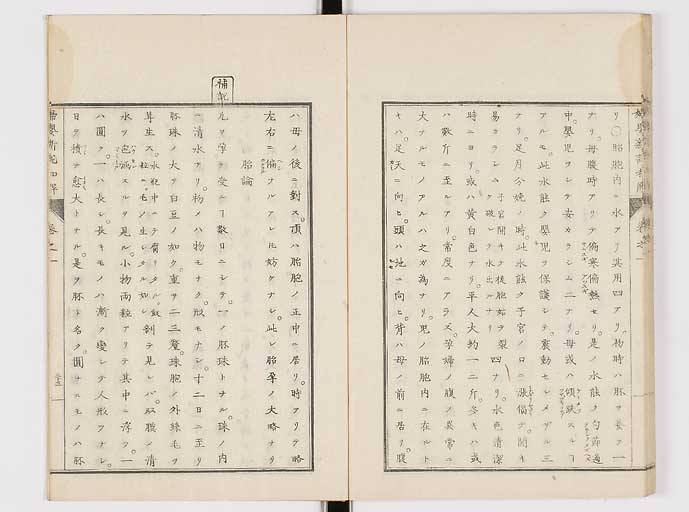 リ○胎胞内ニ水アリ其用四アリ。初時ハ胚ヲ養フ一
ナリ。母腹時アリテ偏寒偏熱セリ。是ノ水能ク勻節適
中。嬰児ヲシテ安カラシム二アリ。母或ハ傾跌スル丁
アルモ。此水能ク嬰児ヲ保護シテ。震動セシメザル三
ナリ。足月分娩ノ時。此水能ク子宮ノ口ニ漲偪テ。開キ
易カラシム 子宮開キタ後胞始ヲ裂ク破レテ水出ルナリ 四ナリ。水色清潔
時ニヨリ。或ハ黄白色ナリ。平人大約一二斤。多キハ或
ハ数斤ニ至ルアリ。常度ニアラズ。孕婦ノ腹ノ異常ニ
大ナルモノアルハ之ガ為ナリ。児ノ胎胞内ニ在ルト
キハ。足天ニ向ヒ。頭ハ地ニ向ヒ。背ハ母ノ前ニ居リ。腹
ハ母ノ後ニ對ス。頂ハ胎胞ノ正中ニ居リ。時アリテ略
左右ニ偏ナルアレ𪜈妨ケナシ。此レ胎孕ノ大略ナリ
胎論
補記
凡ソ孕ヲ受ル丁数日ニシテ。一ノ胚珠トナル。珠ノ内
ニ清水アリ。初メハ物モナク。殻モナシ。十二日ニ至リ
胚珠ノ大ヲ白豆ノ如ク。重サ二三釐。珠胞ノ外絲毛ヲ
茸生ス。 水 中ニテ腐リタル飯粒ニ毛ノ生レタル如シ 剖テ見レバ。双職ノ清
水ヲ包涵スルヲ見ル。小物両粒アリテ其中ニ浮フ。一
ハ圓ク。一ハ長シ。長キモノハ漸ク變シテ人形ヲナシ。
日ヲ積テ愈大トナル。是ヲ胚ト名ク。圓ナルモノハ胚
巻之一